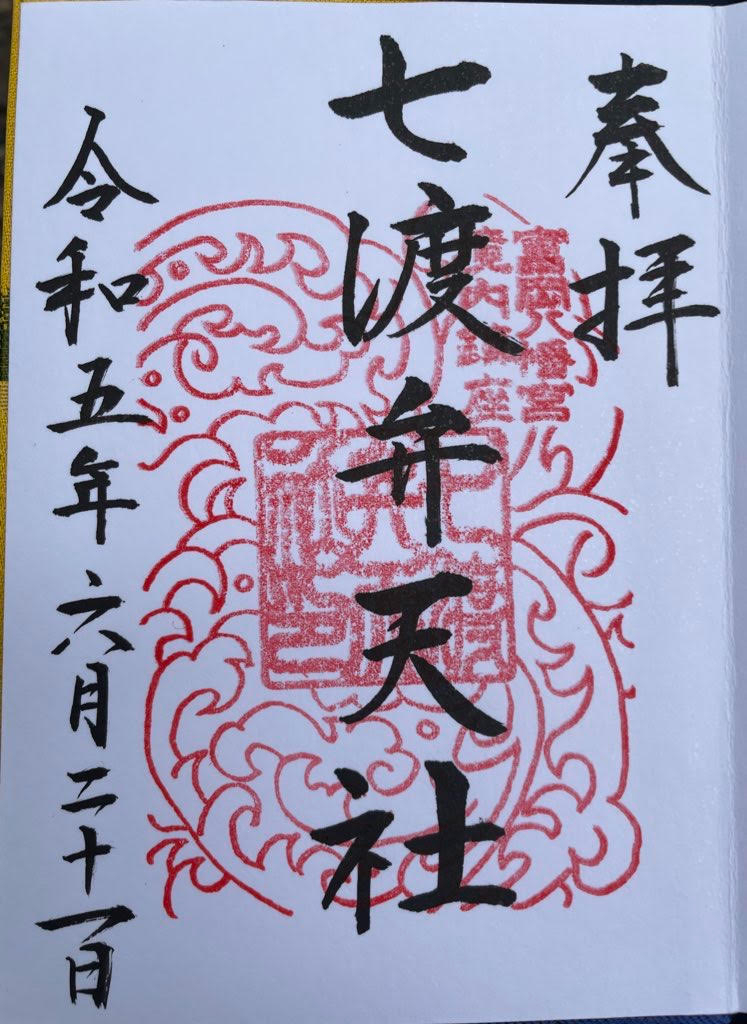 奉拝
富岡八幡宮
境内鎮座
七渡弁天社
令和五年六月二十一日